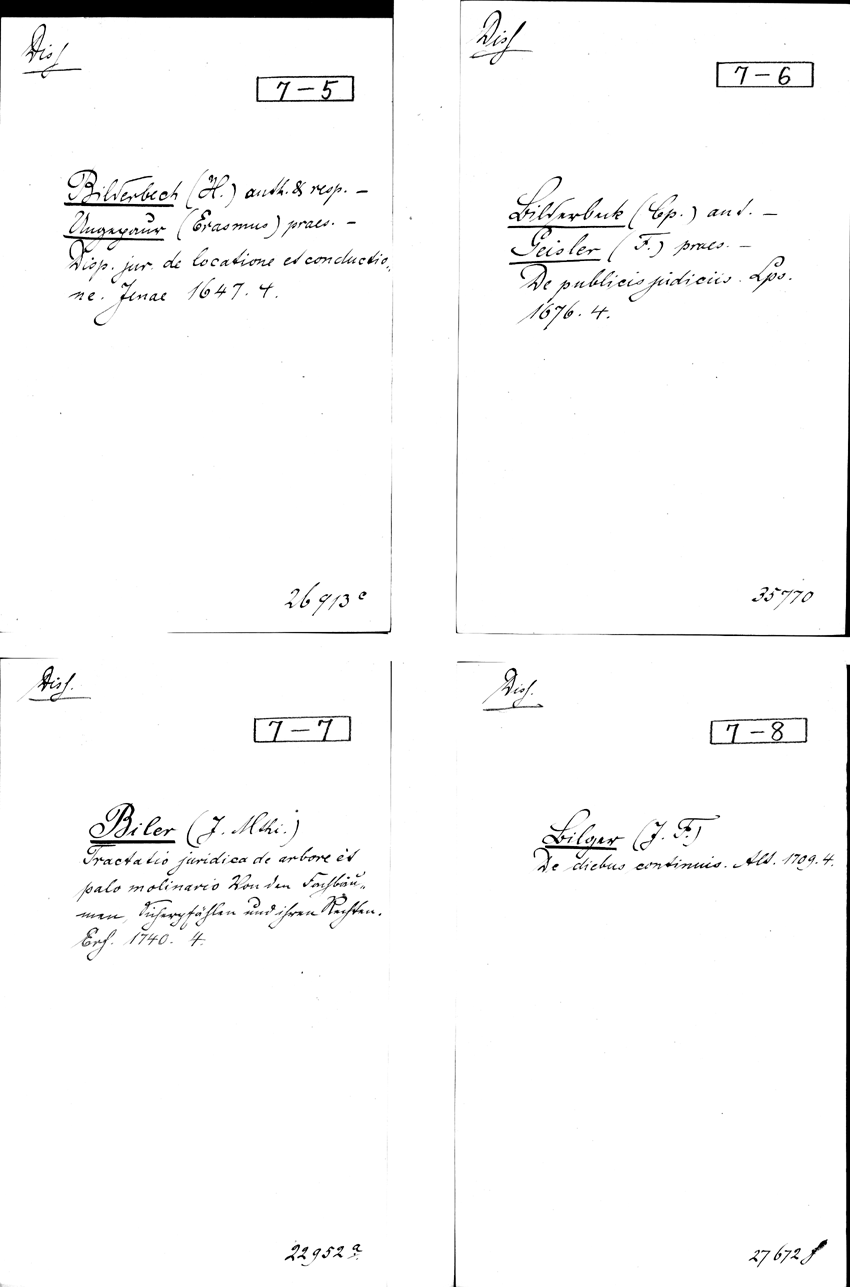 Diss
7-5
Bilderbech (H.) auth. & resp. —
Ungepaur (Erasmus) praes. —
Disp. jur. de locatione et conductio-
ne. Jenae 1647. 4.
26913 e
Diss
7-6
Bilderbeck (Cp.) aut. —
Geisler (F.) praes. —
De publicis judiciis. Lps.
1676. 4.
35770
Diss.
7-7
Biler (J. Mthi.)
Tractatio juridica de arbore et
palo molinario Von den Fachbäu-
men, Sicherpfählen und ihren Rechten.
Erf. 1740. 4.
22952 a
Diss.
7-8
Bilger (J. F.)
De diebus continuis. Alt. 1709. 4.
27672 f